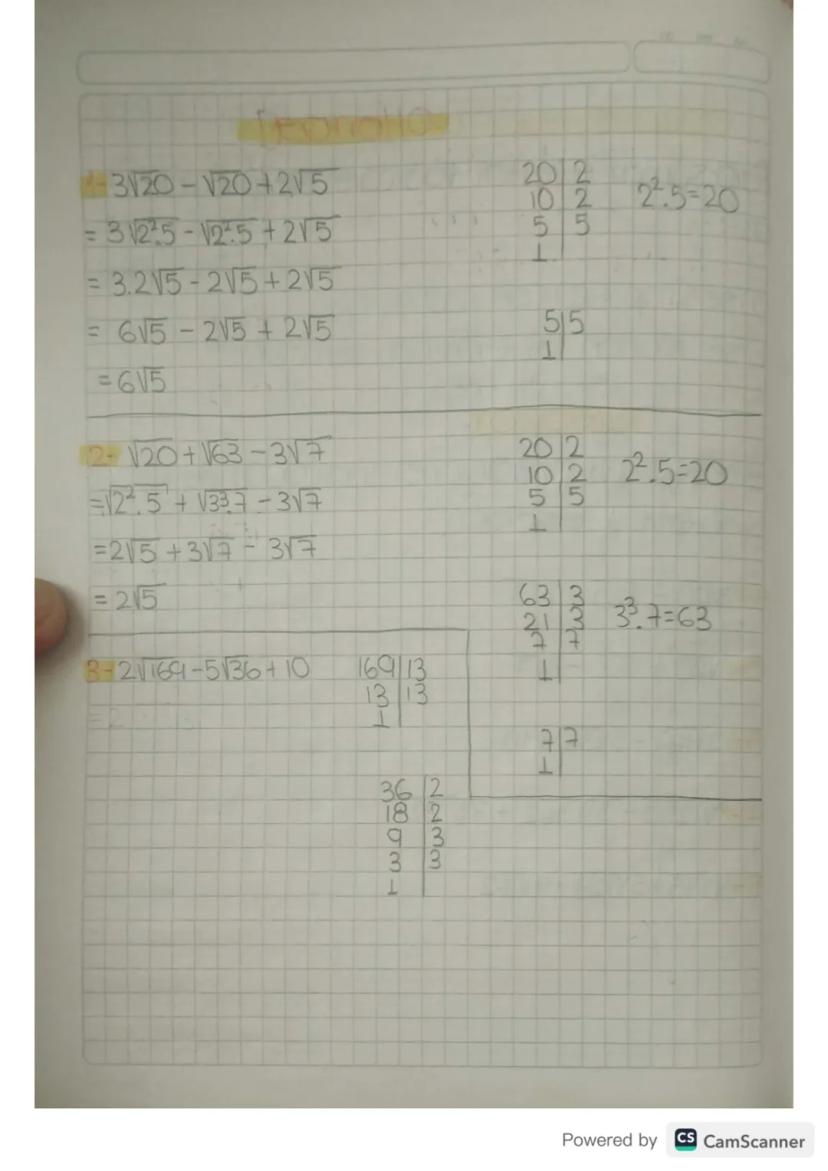 1- 3√20 - √20 + 2√5
= 3√2².5 - √2².5 + 2√5
= 3.2√5 - 2√5 + 2√5
= 6√5 - 2√5 + 2√5
= 6√5
20|2
10|2
5|5
1
2².5=20
5|5
1
2- √20 + √63 - 3√7
=√2².5 + √33.7 - 3√7
=2√5 + 3√7 - 3√7
= 2√5
20|2
10|2
5|5
1
2².5=20
63|3
21|3
7|7
1
3³.7=63
7|7
1
3- 2√169 - 5√36 + 10
=2
169|13
13|13
1
36|2
18|2
9|3
3|3
1
Powered by CS CamScanner